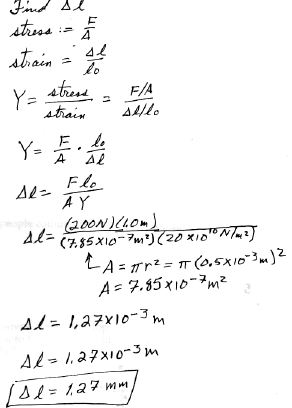 Find Δl
stress := F/A
strain = Δl/lo
Y = stress/strain = F/A / Δl/lo
Y = F/A · lo/Δl
Δl = Flo/AY
Δl = (200N)(1.0m)/(7.85×10⁻⁷m²)(20×10¹⁰N/m²)
A = πr² = π(0.5×10⁻³m)²
A = 7.85×10⁻⁷m²
Δl = 1.27×10⁻³m
Δl = 1.27×10⁻³m
Δl = 1.27 mm